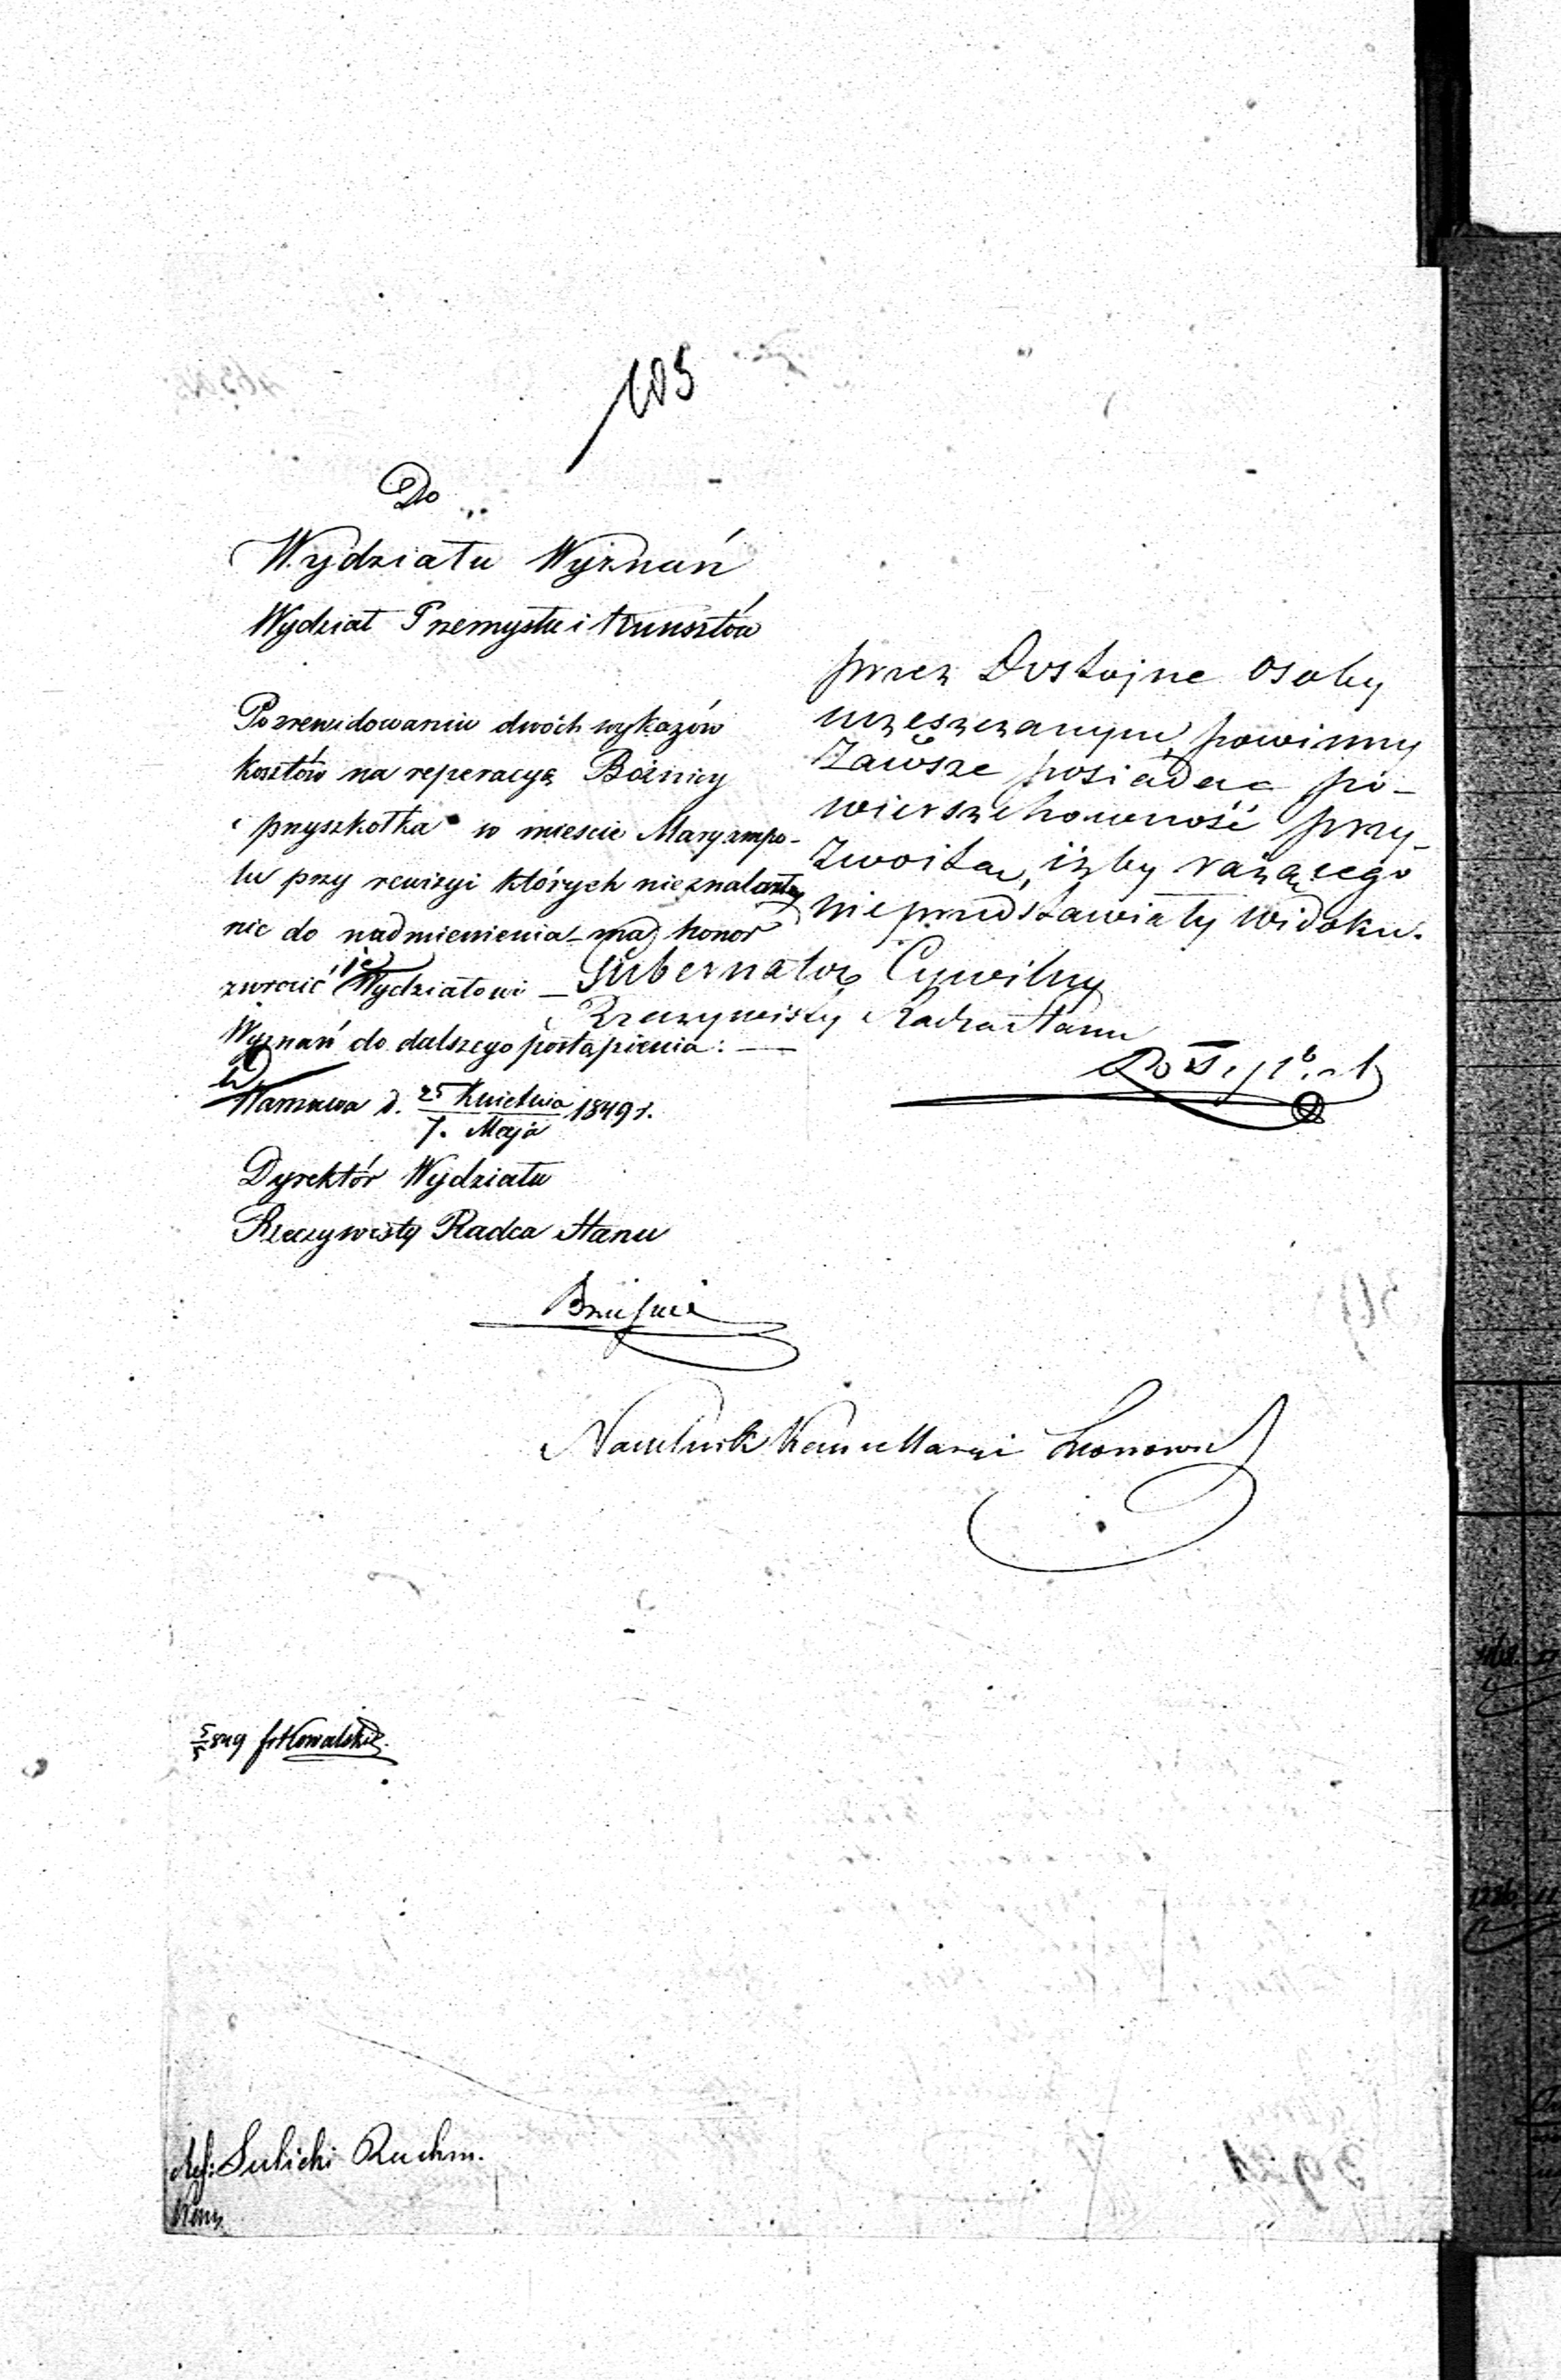 105
Do
Wydziału Wyznań
Wydział Przemysłu i Kunsztów
Po zrewidowaniu dwóch wykazów
kosztów na reperacyę Bóżnicy
i przyszkołka w mieście Maryampo-
lu przy rewizyi których nieznalazłszy
nic do nadmienienia ma honor
zwrócić je Wydziałowi
Wyznań do dalszego postąpienia:
Warszawa d. 25 Kwietnia / 7. Maja 1849 r.
Dyrektór Wydziału
Rzeczywisty Radca Stanu
przez Dostojne osoby
uczęszczanym, powinny
zawsze posiadać po-
wierzchowność przy-
zwoitą, iżby rażącego
nieprzedstawiały widoku.
Gubernator Cywilny
Rzeczywisty Radca Stanu
Naczelnik Kancellaryi
5/5 849 Kowalski
Ref: Sulicki Rachm.